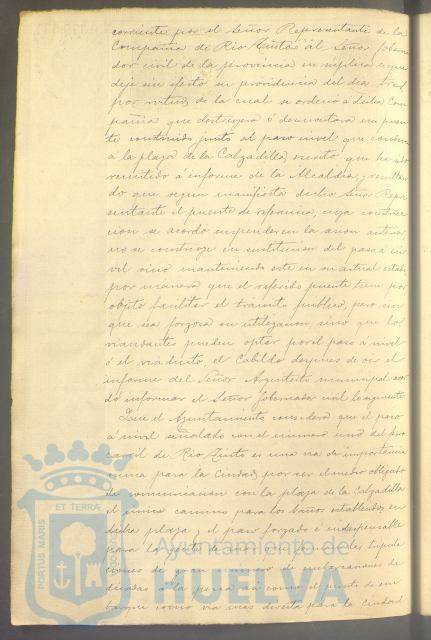 corriente por el Señor Representante de la
Compañia de Rio Tinto al Señor Goberna
dor civil de la provincia en suplica de que
deje sin efecto su providencia del dia
por virtud de la cual se ordenó á dicha Com
pañia que destruyera ó desmontara un puen
te construido junto al paso nivel que conduce
a la playa de la Calzadilla, escrito que ha sido
remitido á informe de la Alcaldia; resultan
do que segun manifiesta dicho Señor Repre
sentante el puente de referencia, cuya construc
cion se acordó suspender en la sesion anterior
no se construye en sustitucion del paso á ni
vel sino manteniendo este en su actual estado
por manera que el referido puente tiene por
objeto facilitar el tránsito publico, pero sin
que sea forzosa su utilizacion sino que los
viandantes pueden optar por el paso á nivel
ó el viaducto, el Cabildo despues de oir el
informe del Señor Arquitecto municipal acor
dó informar al Señor Gobernador civil lo siguiente
Que el Ayuntamiento considera que el paso
á nivel señalado con el número uno del ferro
carril de Rio Tinto es una via de importancia
suma para la ciudad por ser el medio obligado
de comunicacion con la playa de la Calzadilla
el único camino para los baños establecidos en
dicha playa, y el paso forzado é indispensable
para
ciones de gran número de embarcaciones de
dicadas a la pesca asi como el punto de em
barque como via mas directa para la ciudad
PORTUS MARIS ET TERRAE CUSTODIA
Ayuntamiento de
HUELVA